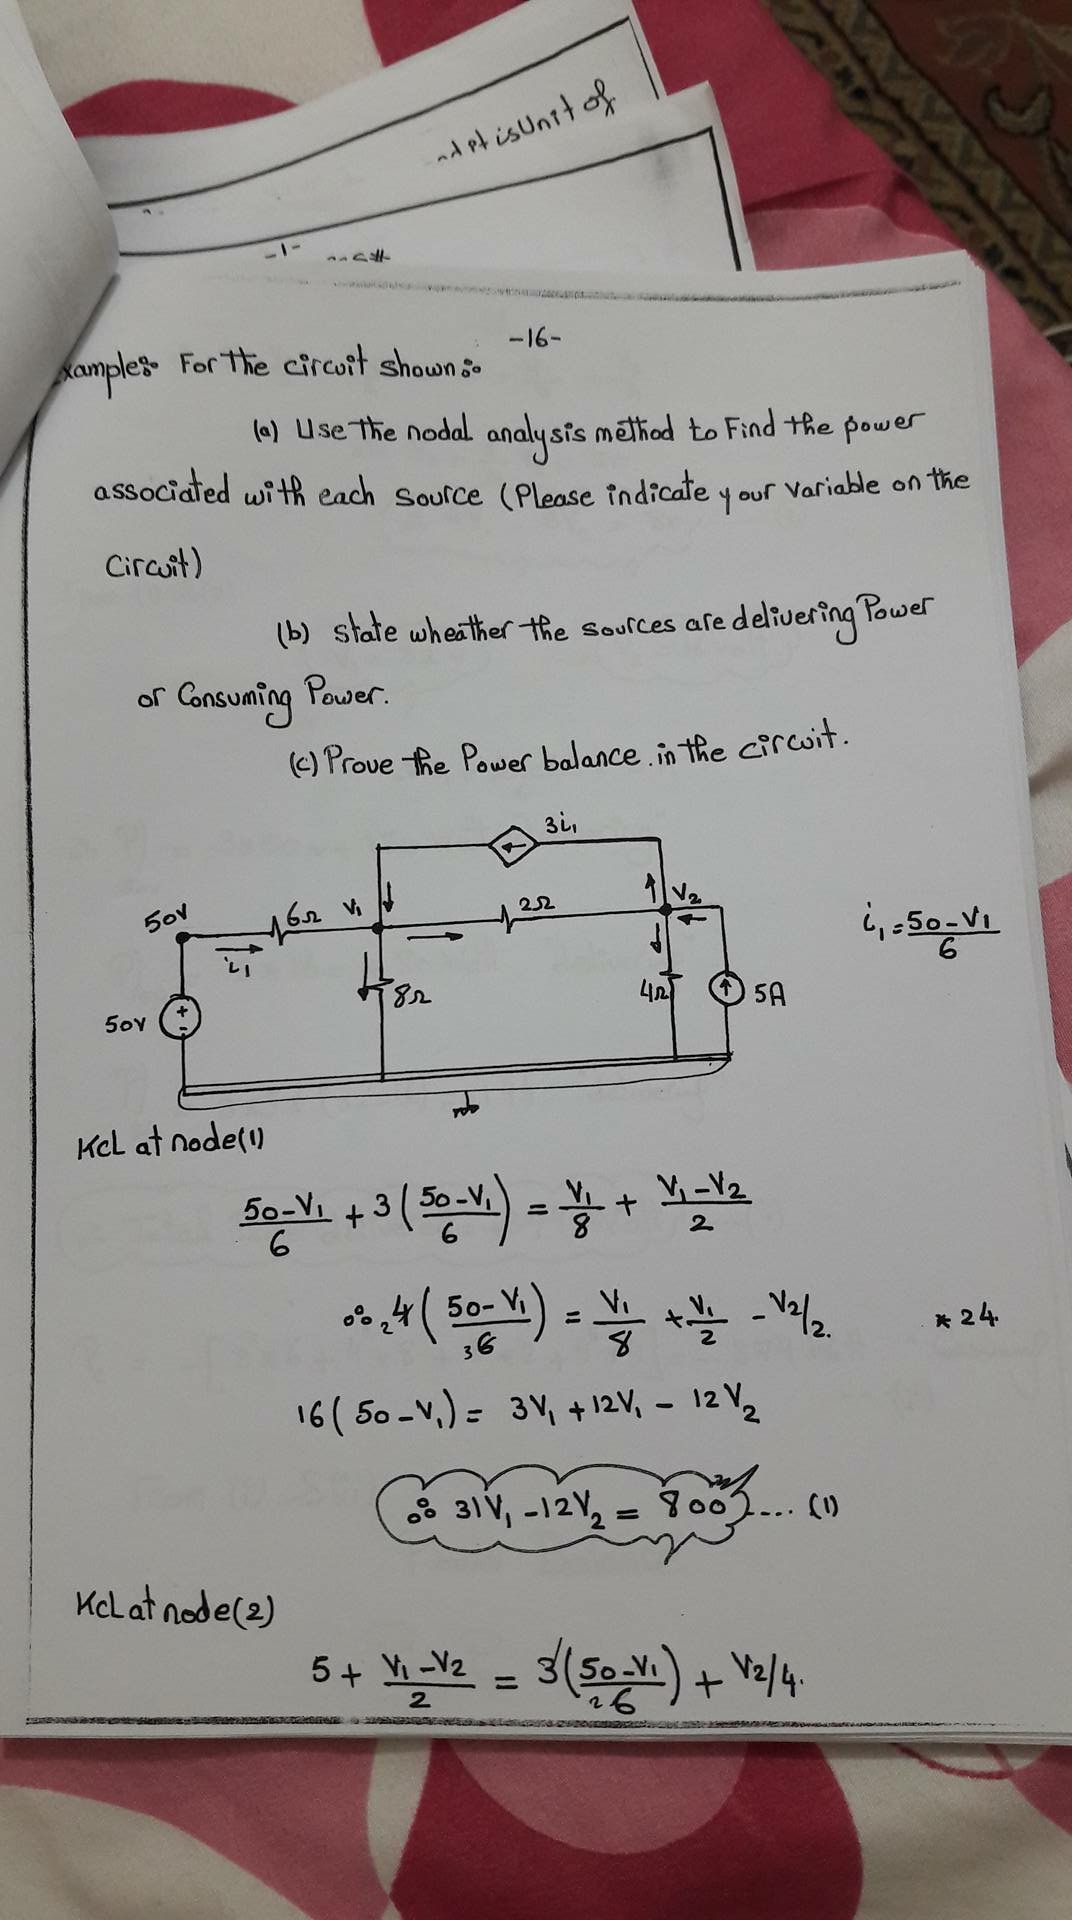 is Unit of
-1-
-16-
xample:- For the circuit shown :-
(a) Use the nodal analysis method to Find the power
associated with each source (Please indicate your variable on the
Circuit)
(b) state wheather the sources are delivering Power
or Consuming Power.
(c) Prove the Power balance. in the circuit.
3i₁
50V 6Ω V₁ 2Ω V₂
i₁ = (50-V₁)/6
i₁
8Ω 4Ω 5A
50V + -
KCL at node(1)
(50-V₁)/6 + 3((50-V₁)/6) = V₁/8 + (V₁-V₂)/2
∴ ₂4((50-V₁)/₃6) = V₁/8 + V₁/2 - V₂/2. *24
16(50-V₁) = 3V₁ + 12V₁ - 12V₂
∴ 31V₁ - 12V₂ = 800 .... (1)
KCL at node(2)
5 + (V₁-V₂)/2 = 3((50-V₁)/₂6) + V₂/4.